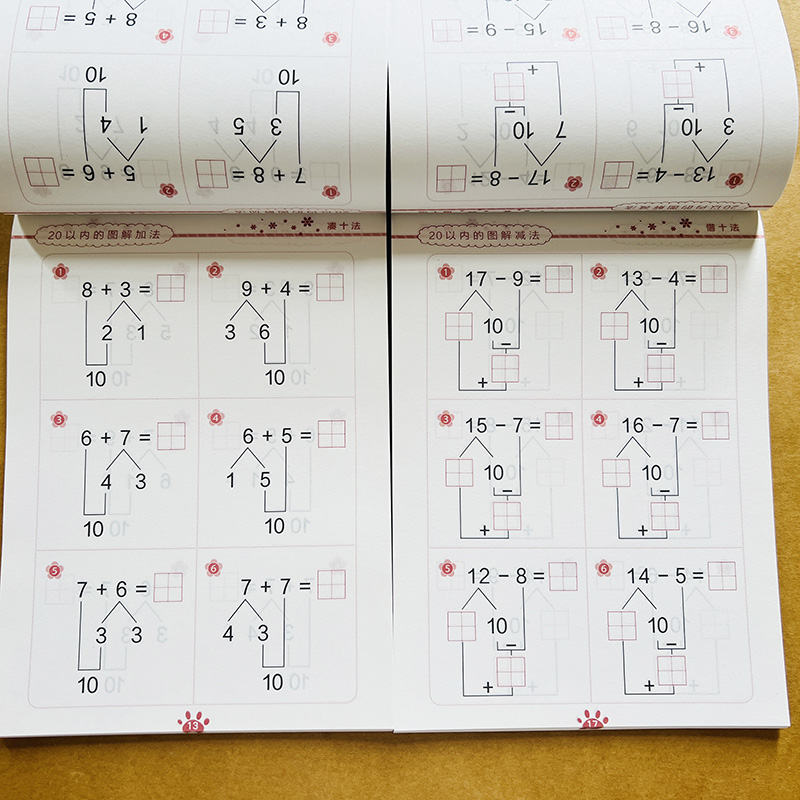 ④ 8 + 5 =
③ 8 + 3 =
④ 15 − 9 =
③ 16 − 8 =
10
10
+
+
−
−
1 4
3 5
7 10
3 10
② 5 + 6 =
① 7 + 8 =
② 17 − 8 =
① 13 − 4 =
20以内的图解加法
凑十法
① 8 + 3 =
2 1
10
② 9 + 4 =
3 6
10
③ 6 + 7 =
4 3
10
④ 6 + 5 =
1 5
10
⑤ 7 + 6 =
3 3
10
⑥ 7 + 7 =
4 3
10
13
20以内的图解减法
借十法
① 17 − 9 =
10
−
+
② 13 − 4 =
10
−
+
③ 15 − 7 =
10
−
+
④ 16 − 7 =
10
−
+
⑤ 12 − 8 =
10
−
+
⑥ 14 − 5 =
10
−
+
17